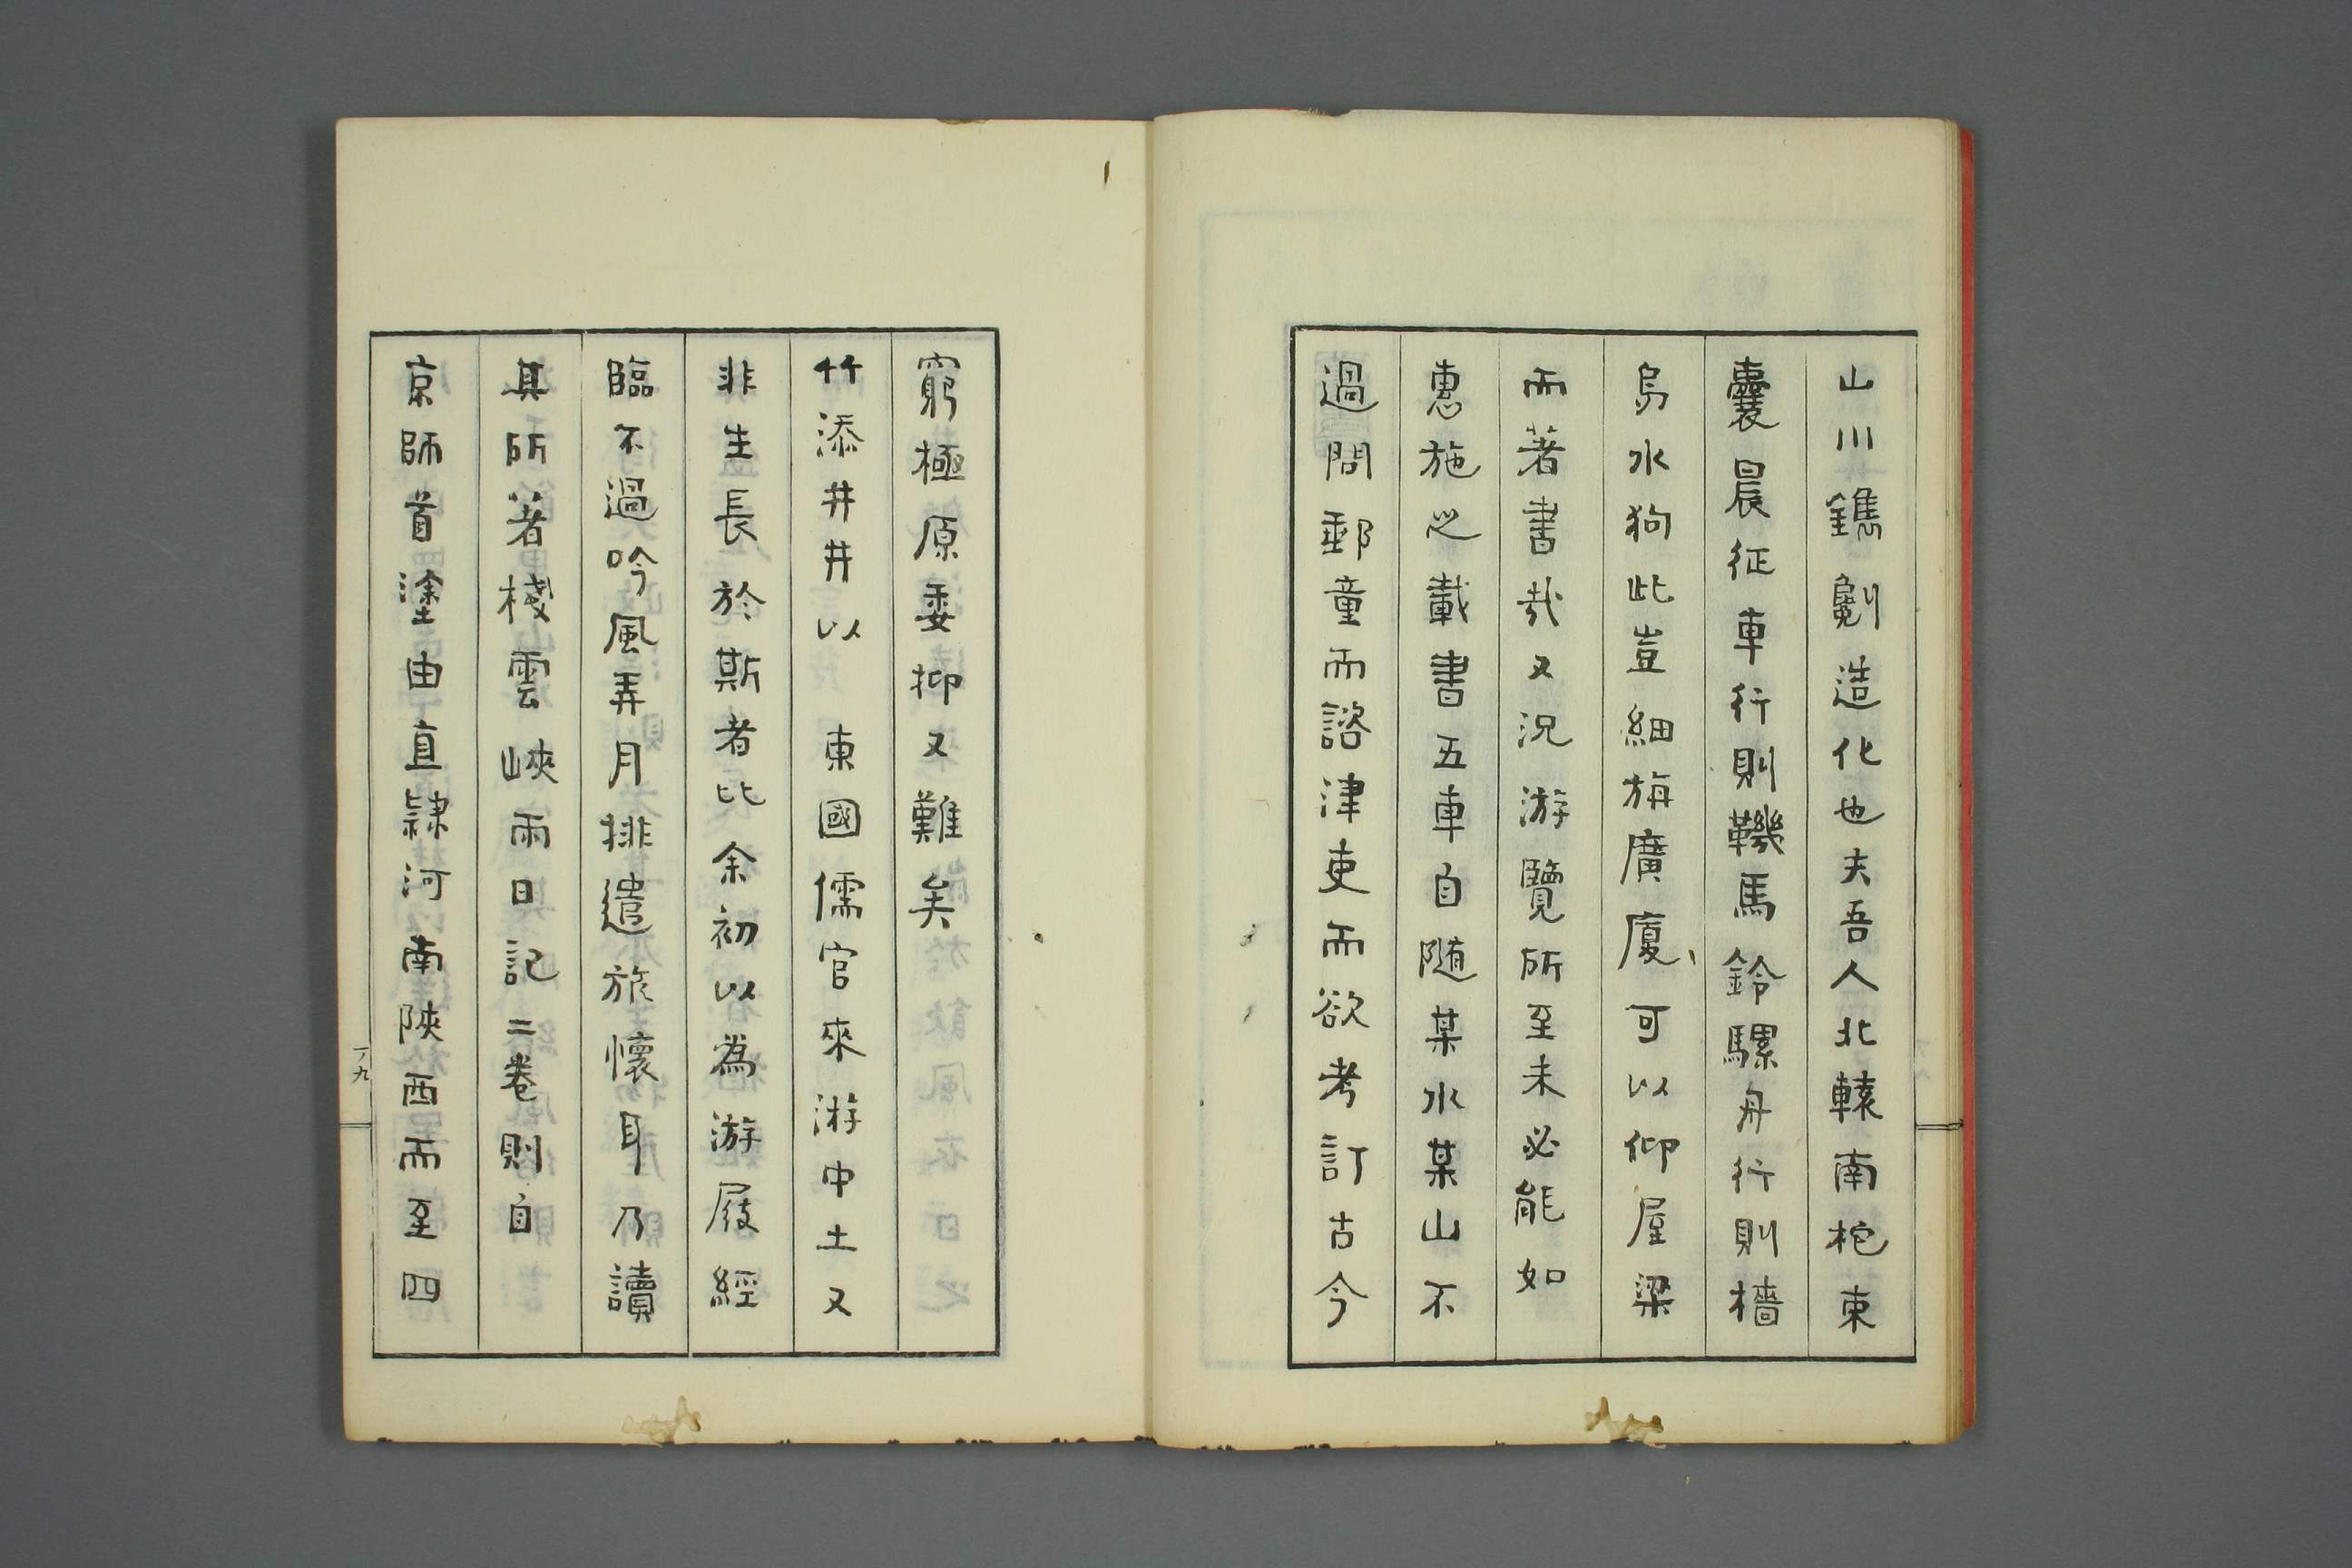 山川鐫劖造化也夫吾人北轅南柁束
囊晨征車行則鞿馬鈴騾舟行則檣
烏水狗此豈細旃廣廈可以仰屋梁
而著書哉又況游覽所至未必能如
惠施之載書五車自随某水某山不
過問郵童而諮津吏而欲考訂古今
窮極原委抑又難矣
竹添井井以 東國儒官來游中土又
非生長於斯者比余初以為游屐經
臨不過吟風弄月排遣旅懷耳乃讀
其所著棧雲峽雨日記二卷則自
京師首塗由直隷河南陝西而至四
丁九